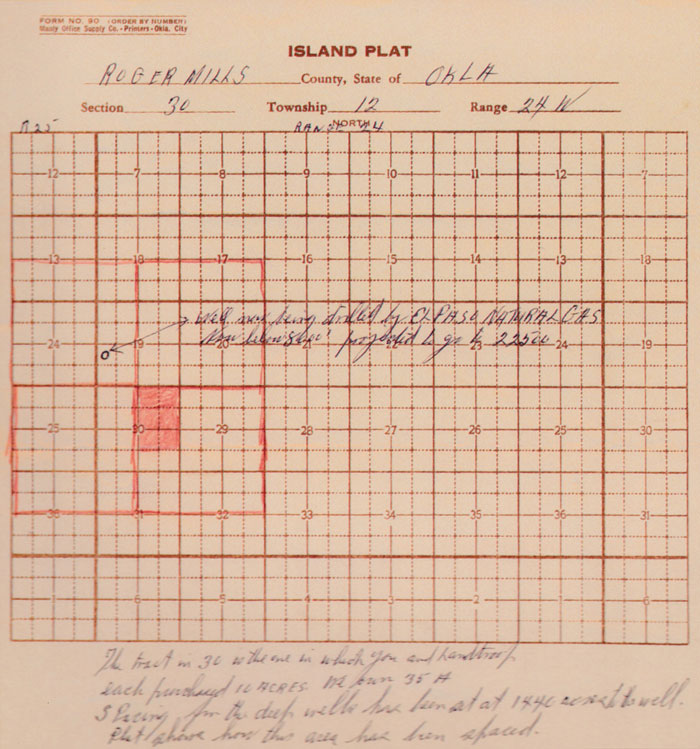 FORM NO. 90 (ORDER BY NUMBER)
Manly Office Supply Co. - Printers - Okla. City
ISLAND PLAT
ROGER MILLS County, State of OKLA
Section 30 Township 12 Range 24 W
R 25 RANGE 24 NORTH
12 7 8 9 10 11 12 7
13 18 17 16 15 14 13 18
Well now being drilled by EL PASO NATURAL GAS
Now below projected to go to 22500
24 19 20 21 22 23 24 19
25 30 29 28 27 26 25 30
36 31 32 33 34 35 36 31
1 6 5 4 3 2 1 6
The tract in 30 is the one in which you and
each purchased 10 ACRES. We own 35 A
Spacing for the deep wells has been set at 1440 acres to well.
Plat shows how this area has been spaced.